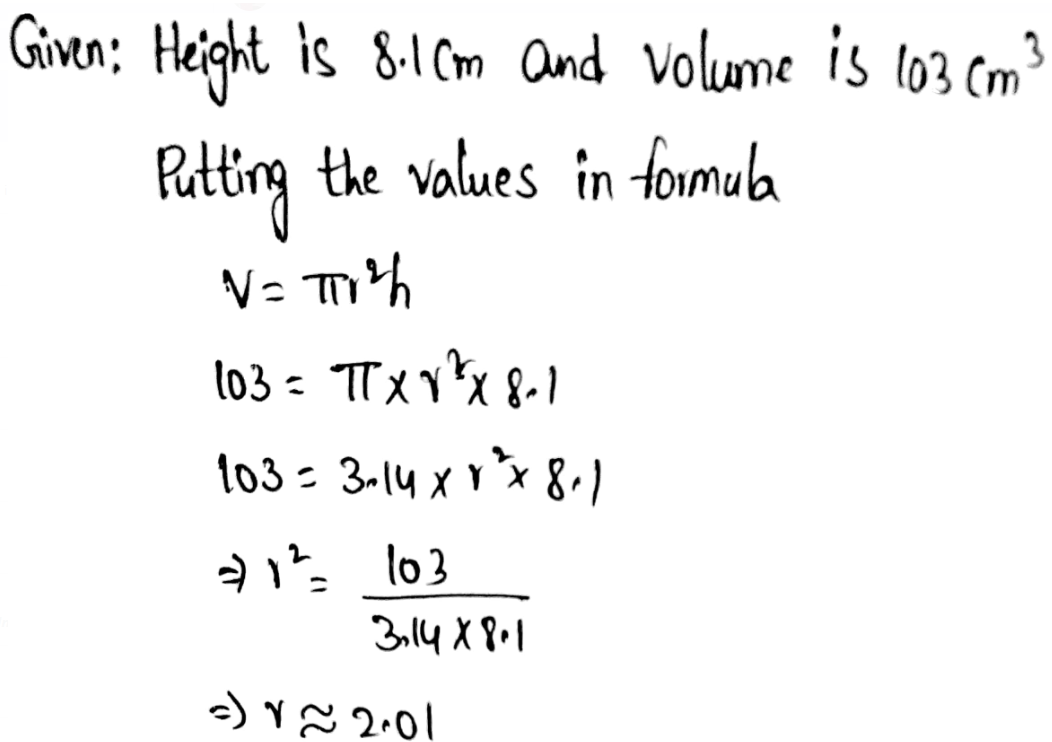 Given: Height is 8.1 cm and volume is 103 cm³
Putting the values in formula
V = πr²h
103 = π × r² × 8.1
103 = 3.14 × r² × 8.1
⇒ r² = 103 / 3.14 × 8.1
⇒ r ≈ 2.01